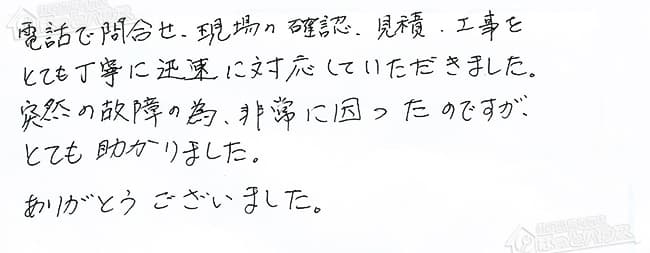 電話で問合せ、現場の確認、見積、工事を
とても丁寧に迅速に対応していただきました。
突然の故障の為、非常に困ったのですが、
とても助かりました。
ありがとうございました。